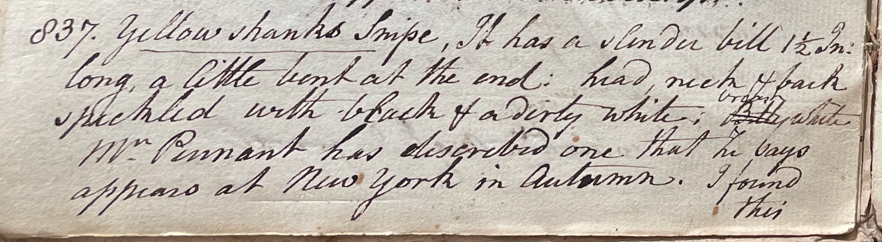 837. Yellow shanks Snipe, It has a slender bill 1½ In:
long, a little bent at the end: head, neck & back
speckled with black & a dirty white; breast white
Mr. Pennant has discribed one that he says
appears at New York in Autumn. I found
this